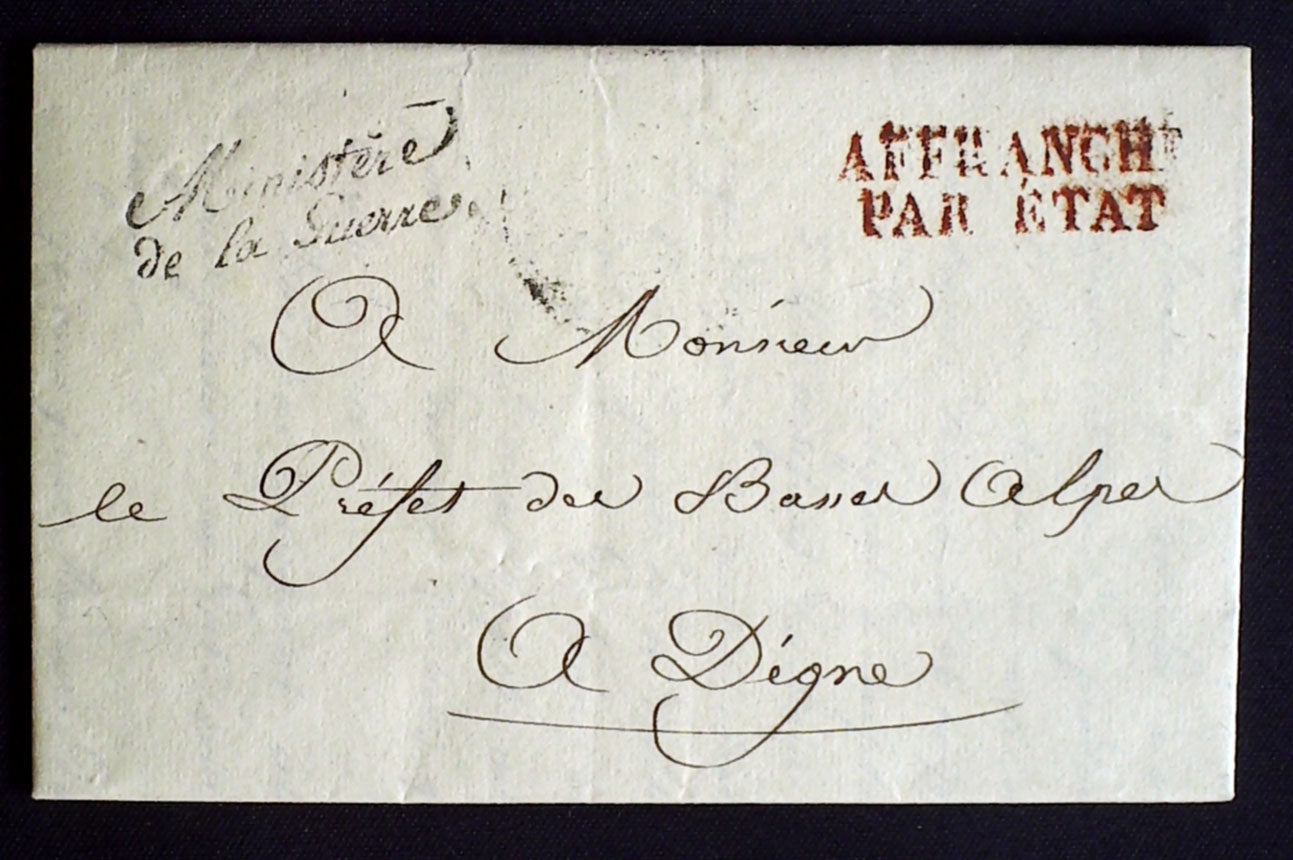 Ministère
de la Guerre
AFFRANCHI
PAR ÉTAT
A Monsieur
le Préfet des Basses Alpes
A Digne